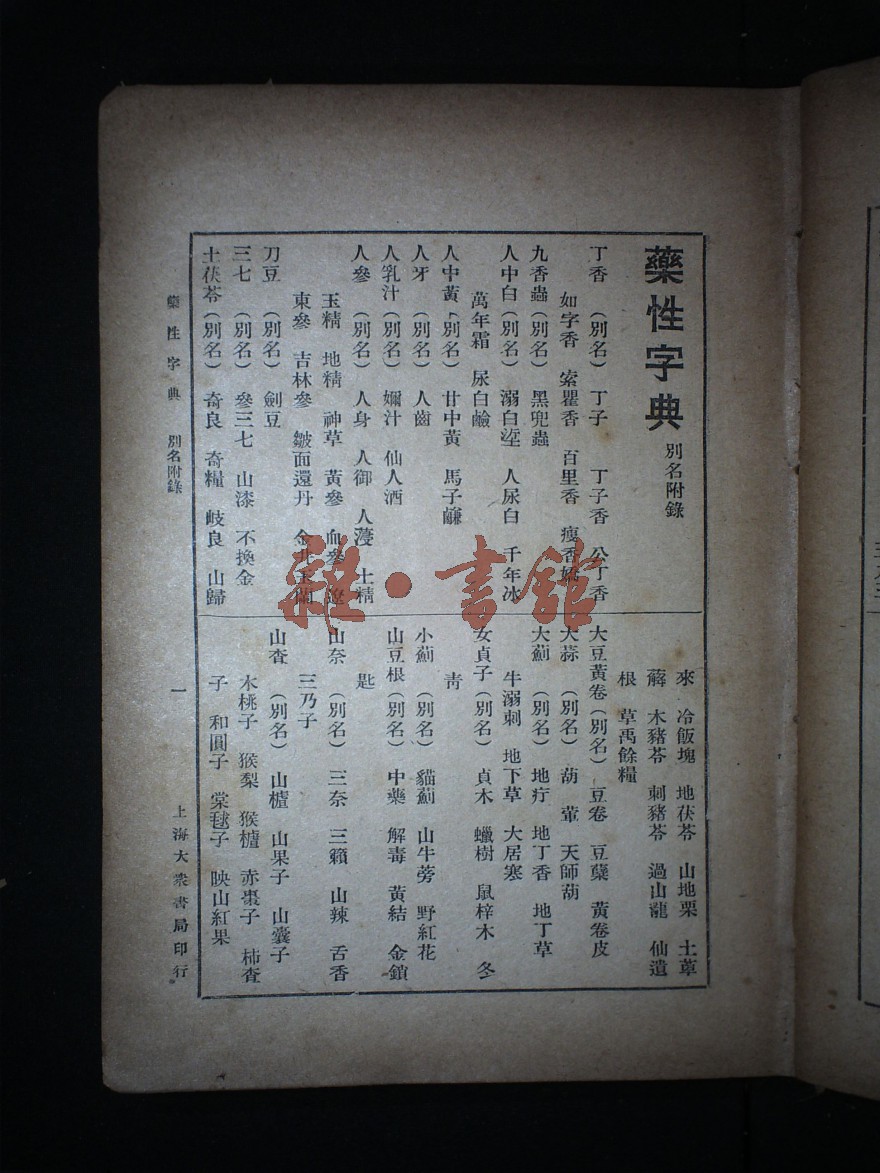 藥性字典 別名附錄
丁香 (別名) 丁子 丁子香 公丁香
如字香 索瞿香 百里香 瘦香嬌
九香蟲 (別名) 黑兜蟲
人中白 (別名) 溺白垽 人尿白 千年冰
萬年霜 尿白鹼
人中黃 (別名) 甘中黃 馬子鹻
人牙 (別名) 人齒
人乳汁 (別名) 嬭汁 仙人酒
人參 (別名) 人身 人御 人薓 土精
玉精 地精 神草 黃參 血參 遼
東參 吉林參 皺面還丹 金井玉蘭
刀豆 (別名) 劍豆
三七 (別名) 參三七 山漆 不換金
土茯苓 (別名) 奇良 奇糧 岐良 山歸
來 冷飯塊 地茯苓 山地栗 土萆
薢 木豬苓 刺豬苓 過山龍 仙遺
根 草禹餘糧
大豆黃卷 (別名) 豆卷 豆蘖 黃卷皮
大蒜 (別名) 葫 葷 天師葫
大薊 (別名) 地疔 地丁香 地丁草
牛溺刺 地下草 大居寒
女貞子 (別名) 貞木 蠟樹 鼠梓木 冬
青
小薊 (別名) 貓薊 山牛蒡 野紅花
山豆根 (別名) 中藥 解毒 黃結 金鎖
匙
山奈 (別名) 三奈 三籟 山辣 舌香
三乃子
山査 (別名) 山樝 山果子 山囊子
木桃子 猴梨 猴樝 赤棗子 柿査
子 和圓子 棠毬子 映山紅果
藥性字典 別名附錄
一
上海大衆書局印行
雜·書館